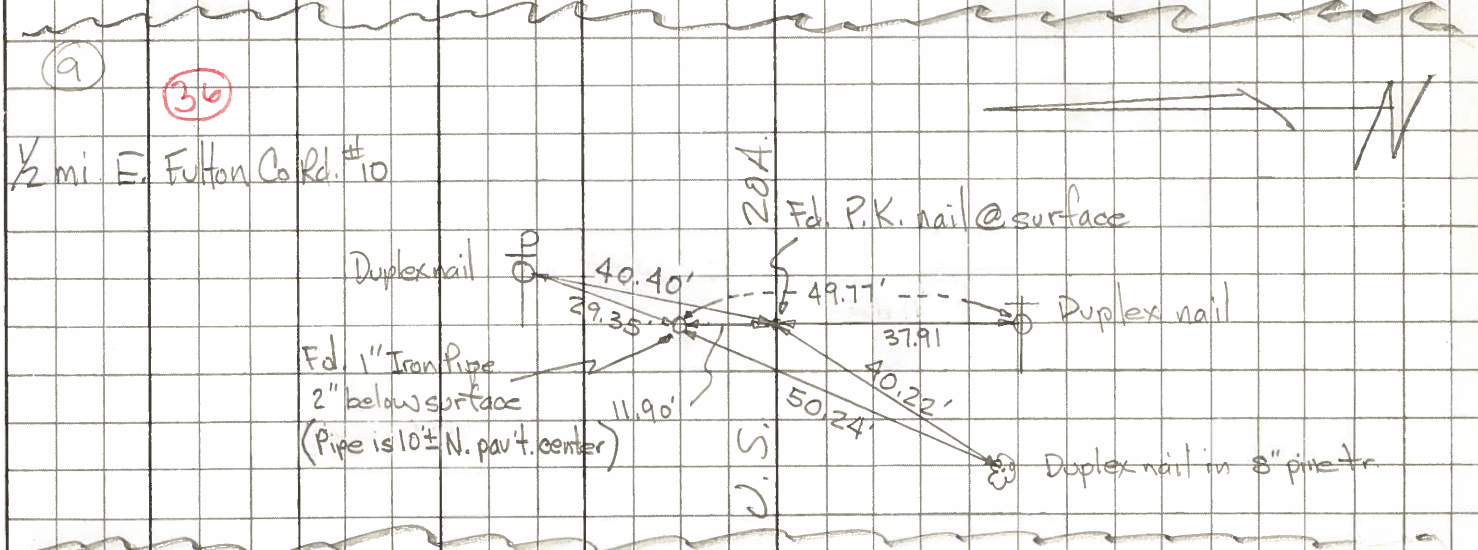 9
36
N
1/2 mi. E. Fulton Co Rd. #10
U.S. 20A.
Fd. P.K. nail @ surface
Duplex nail
40.40'
29.35'
49.77'
Duplex nail
37.91
Fd. 1" Iron Pipe
2" below surface
(Pipe is 10'± N. pav't. center)
11.90'
40.22'
50.24'
Duplex nail in 8" pine tr.